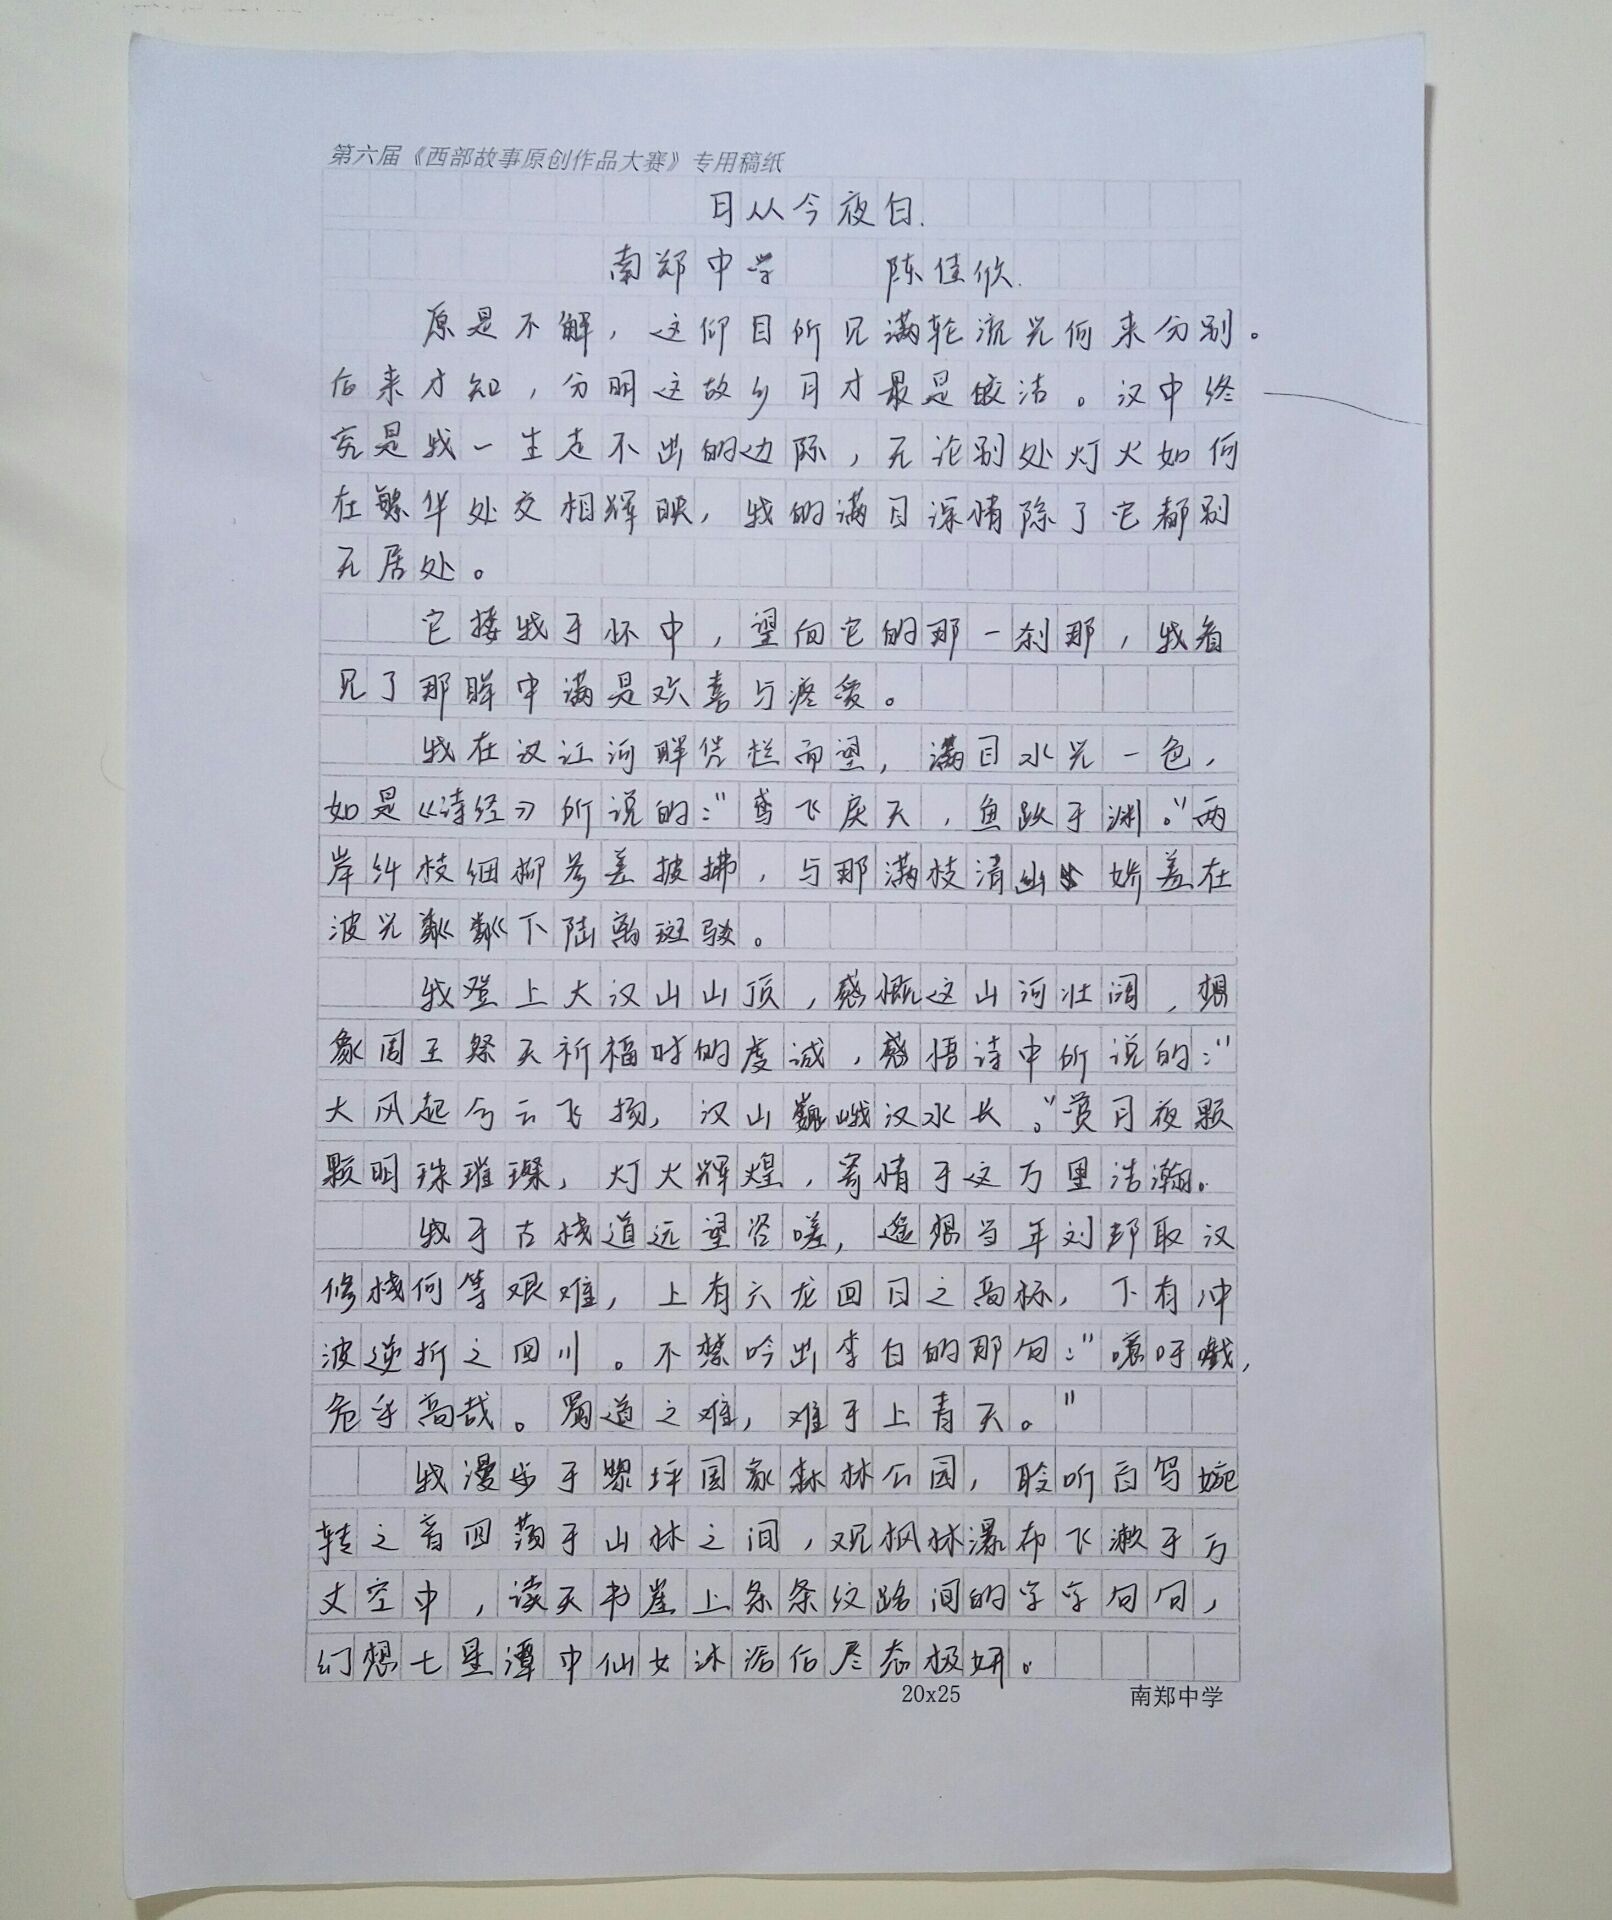 第六届《西部故事原创作品大赛》专用稿纸
月从今夜白.
南郑中学 陈佳欣.
原是不解，这仰目所见满轮流光何来分别。
后来才知，分明这故乡月才最是皎洁。汉中终
究是我一生走不出的边际，无论别处灯火如何
在繁华处交相辉映，我的满目深情除了它都别
无居处。
它接我于怀中，望向它的那一刹那，我看
见了那眸中满是欢喜与疼爱。
我在汉江河畔凭栏而望，满目水光一色，
如是《诗经》所说的：“鸢飞戾天，鱼跃于渊。”两
岸纤枝细柳参差披拂，与那满枝清幽娇羞在
波光粼粼下陆离斑驳。
我登上大汉山山顶，感慨这山河壮阔，想
象周王祭天祈福时的虔诚，感悟诗中所说的：“
大风起兮云飞扬，汉山巍峨汉水长。”赏月夜颗
颗明珠璀璨，灯火辉煌，寄情于这万里浩瀚。
我于古栈道远望咨嗟，遥想当年刘邦取汉
修栈何等艰难，上有六龙回日之高标，下有冲
波逆折之回川。不禁吟出李白的那句：“噫吁戲，
危乎高哉。蜀道之难，难于上青天。”
我漫步于黎坪国家森林公园，聆听百鸟婉
转之音回荡于山林之间，观枫林瀑布飞漱于万
丈空中，读天书崖上条条纹路间的字字句句，
幻想七星潭中仙女沐浴后尽态极妍。
20x25 南郑中学